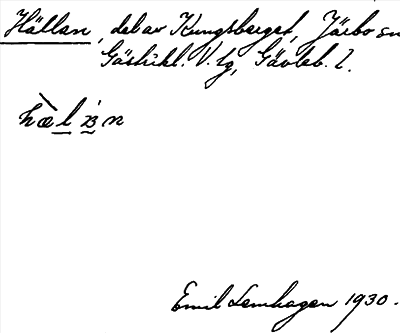 Hällan, del av Kungsberget, Järbo sn
Gästrikl. V. tg, Gävleb. l.
Emil Lemhagen 1930.